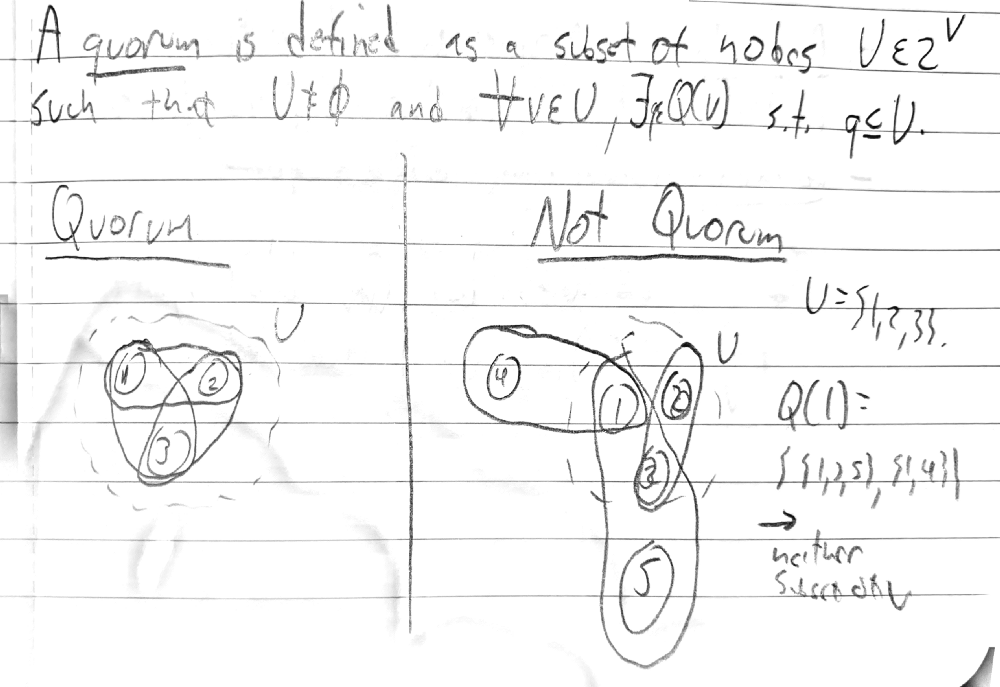 A quorum is defined as a subset of nodes U ∈ 2^V
such that U ≠ ∅ and ∀v∈U, ∃q∈Q(v) s.t. q⊆U.
Quorum
Not Quorum
U
1
2
3
U = {1,2,3}.
U
4
1
2
3
5
Q(1)=
{{1,3,5}, {1,4}}
→
neither
subset of U